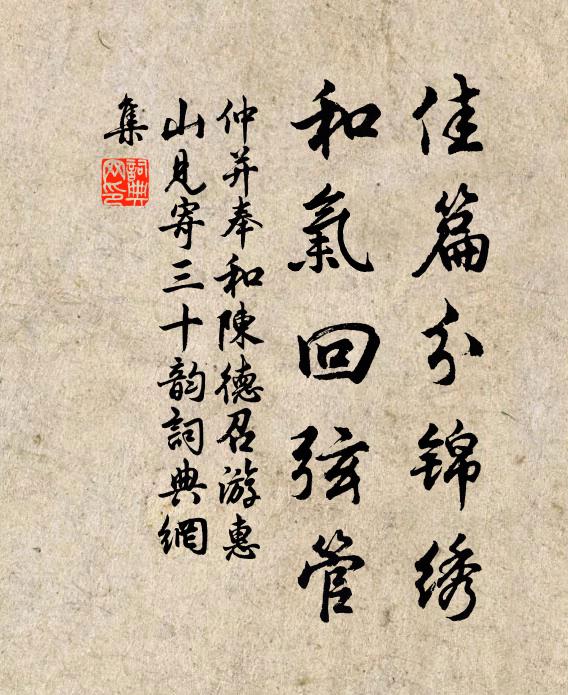 佳篇分锦绣
和氣回弦管
仲并奉和陳德召游惠
山見寄三十韵詞典網
集
詞典网印